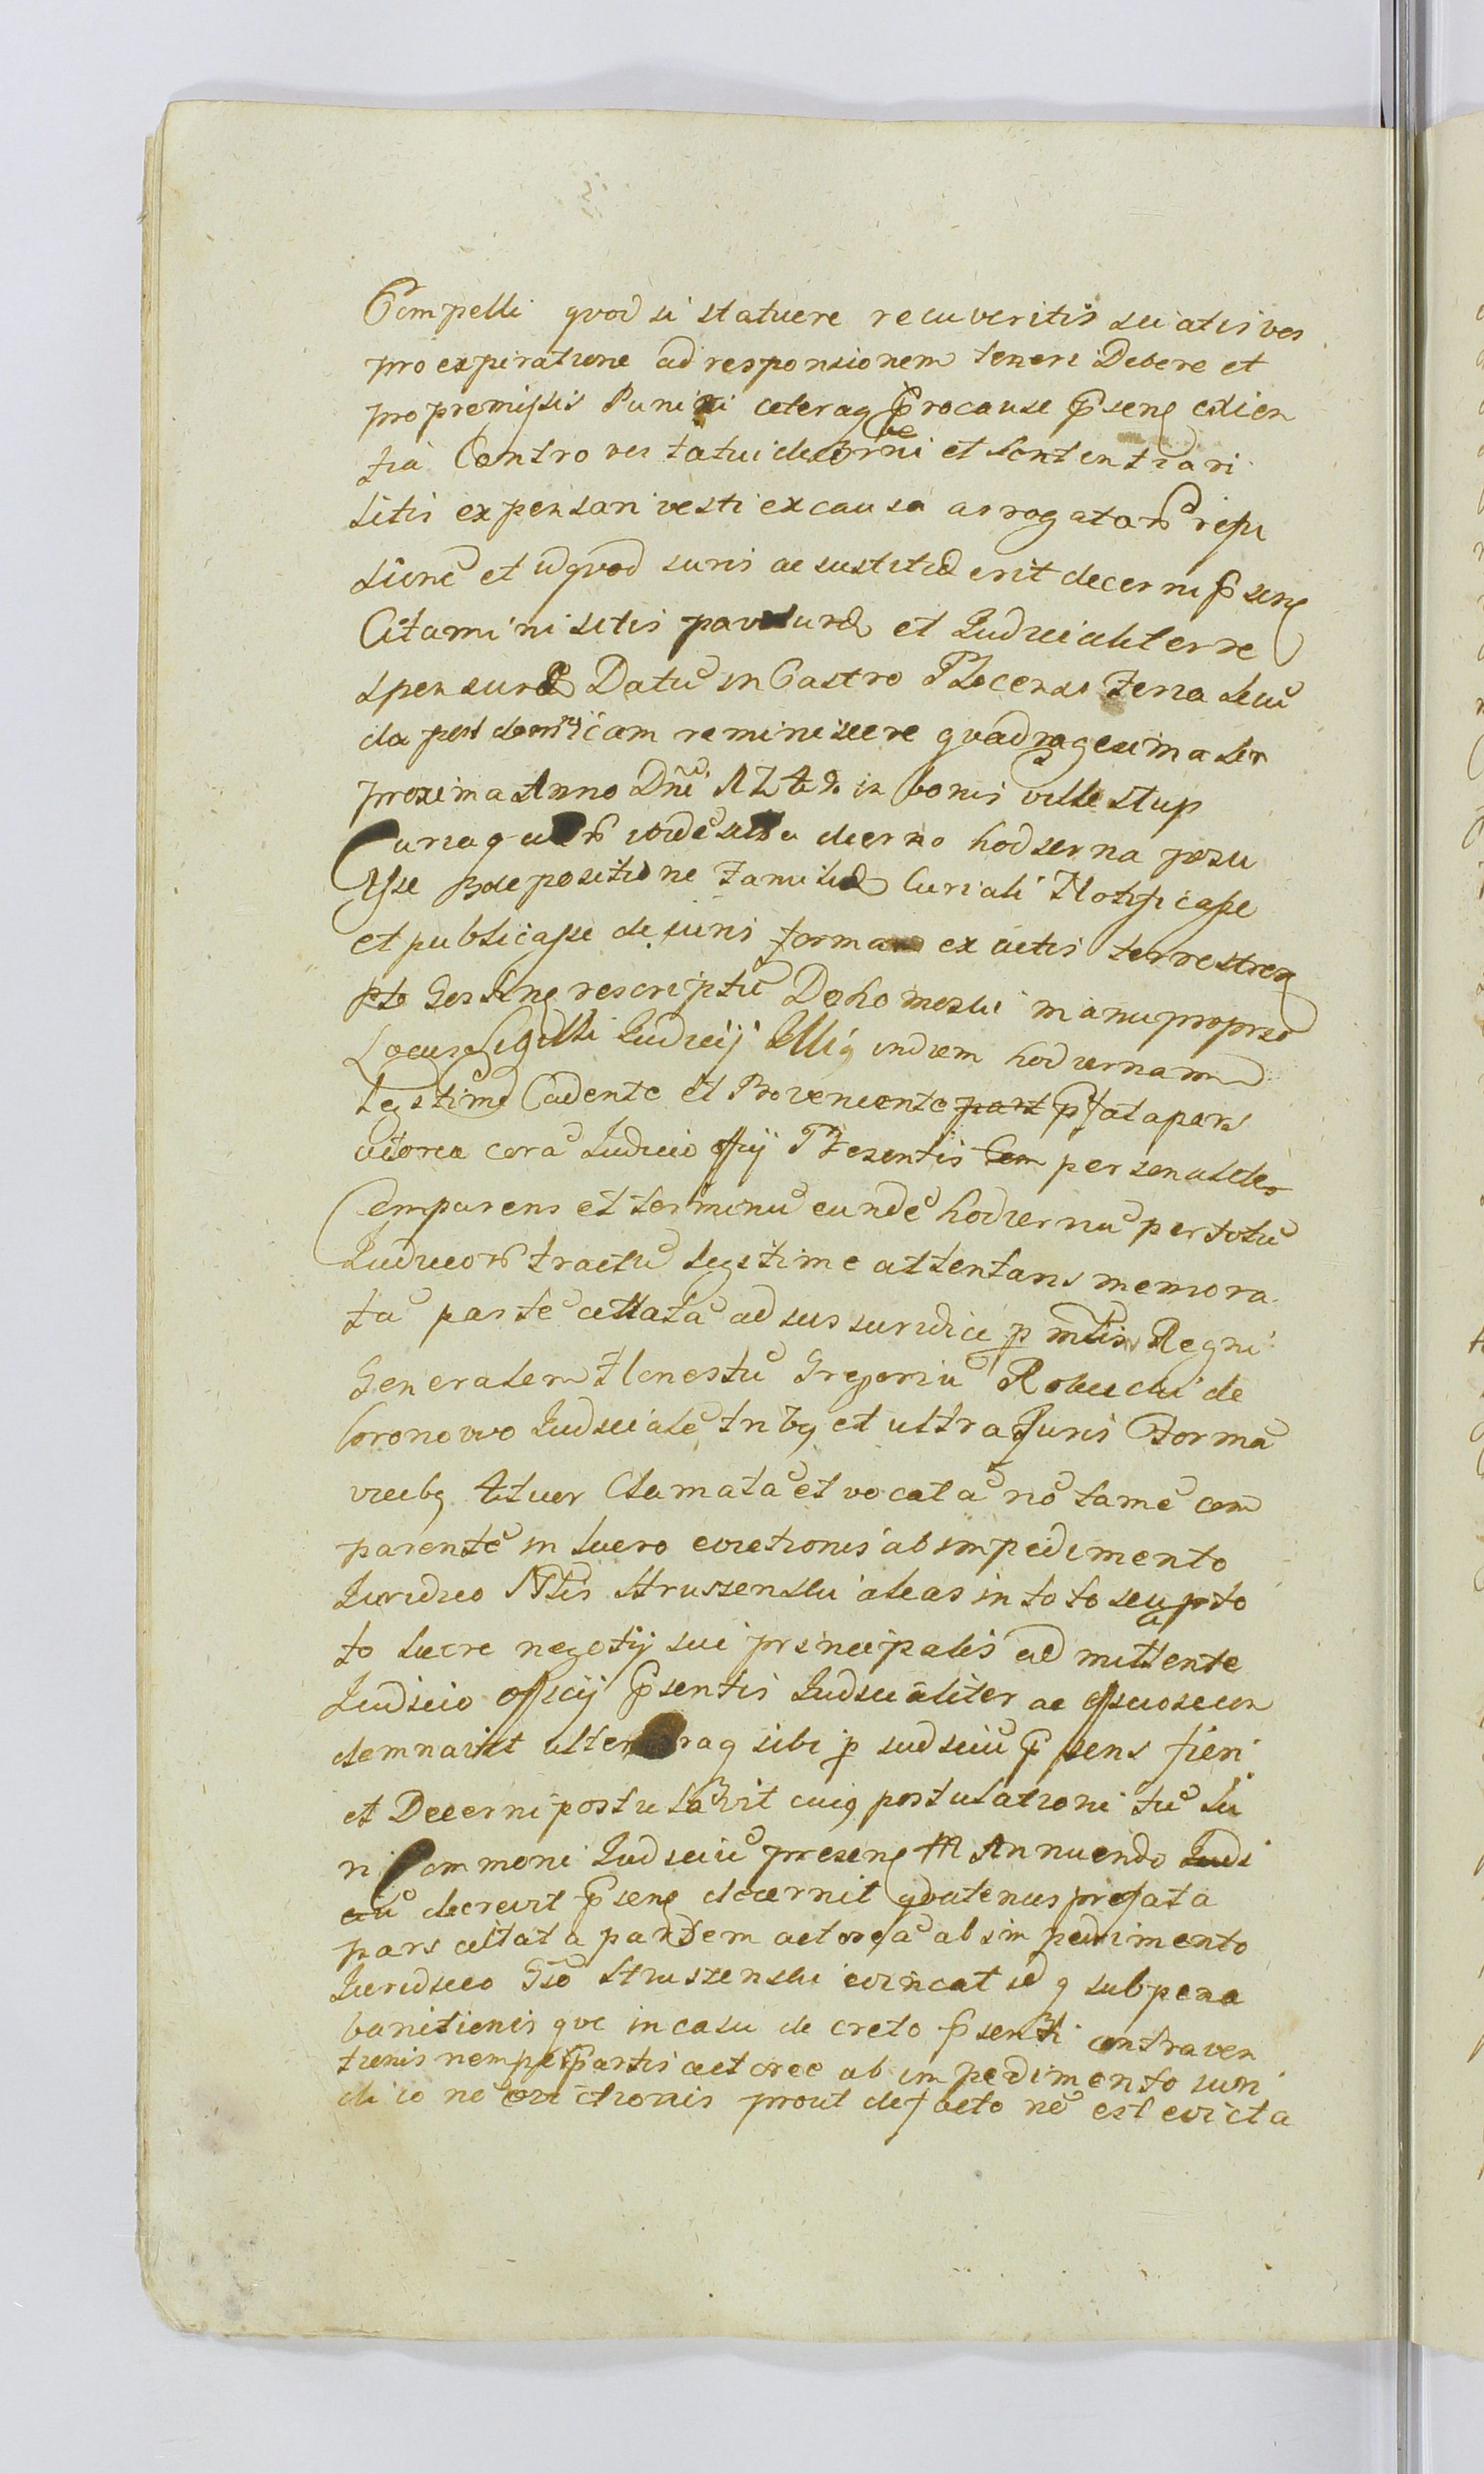 Compelli quod si statuere recuveritis sciatis vos
pro expiratione ad responsionem teneri Debere et
pro premissis Puniri ceteraq₃ pro cause p̃senq exien
tia Contro vos statui decerni et sententiari
litis expensari vesti ex causa arrogatarũ repu
sione et id quod iuris ac iustitiæ erit decerni p̃senq
Citamini sitis parituræ et Judicialiter re
sponsuræ Datũ in Castro Plocensi Feria Secũ
da post dominicam reminiscere quadragesima lem
proxima Anno Dñi in bonis ville Stup
Curiaq ibidẽ die no hodierna posu
isse Depositione Familiæ Curiali Notificasse
et publicasse de iuris forma ex actis terrestreq
rescriptũ Dohomeski manu proprio
Locus Sigilli Judicij Illiq in diem hodiernam
Legitime Cadente et Proveniente part p̃fata pars
actorea corã Judicio offij Presentis Com personaliter
Comparens et terminũ eundẽ hodiernũ per totũ
Judiciorũ tractũ legitime attentans memora
tã partẽ citatã ad ius iuridici p mtis Regni
Generalem Honestũ Gregoriũ Robucki de
Coronowo Judicialẽ tribq et ultra Juris Formã
vicibq Clamatã et vocatã nõ tamẽ com
parentẽ in lucro evictionis ab impedimento
Juridico Struszenski aleas in toto seu pr to
to lucre negotij sui principalis ad mittente
Judicio officij p̃sentis Judicialiter ac officiose con
demnavit ulterioraq sibi p judiciũ p̃sens fieri
et Decerni postulavit cuiq postulationi tũ iu
ri Commoni Judiciũ presenq Annuendo Judi
ciũ decrevit p̃senq decernit quatenus prefata
pars citata partem actoreã ab impedimento
Juridico Gso Struszenski evincat id q sub pena
banitionis que in casu de creto p̃senti contraven
tionis nempe partis actoree ab impedimento iuri
dico nõ evictionis prout de facto nõ est evicta